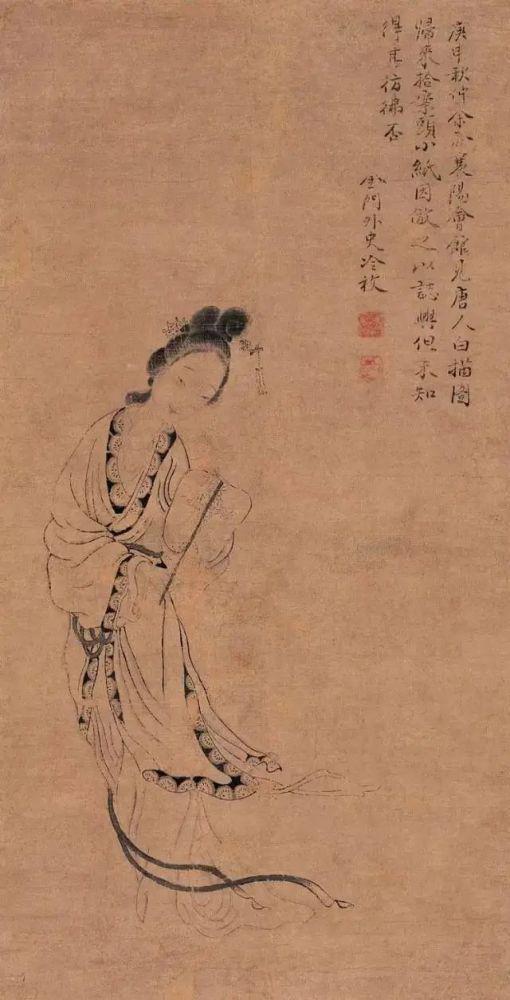 庚申秋仲余於襄陽會館見唐人白描圖
歸來拾案頭小紙因倣之以誌興但未知
得其彷彿否
金門外史冷枚